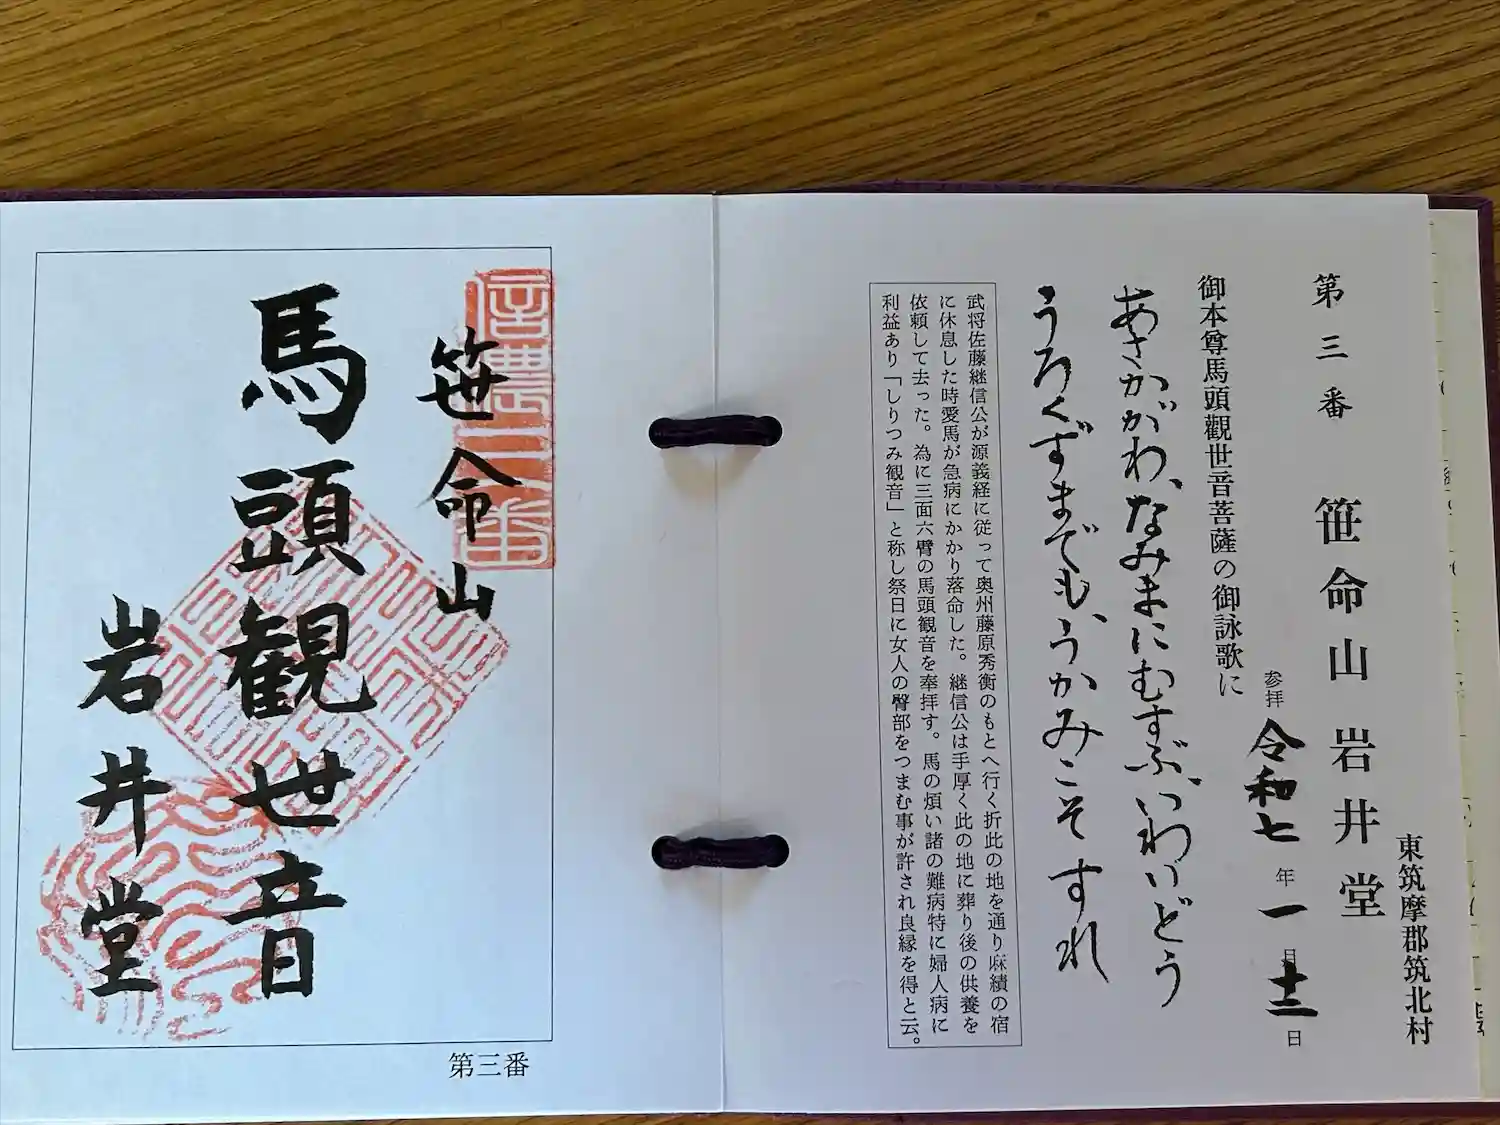 東筑摩郡筑北村
第三番 笹命山 岩井堂
参拝 令和七年一月十二日
御本尊馬頭觀世音菩薩の御詠歌に
あさかがわ、なみまにむすぶ、いわいどう
うろくずまでも、うかみこそすれ
武将佐藤継信公が源義経に従って奥州藤原秀衡のもとへ行く折此の地を通り麻績の宿
に休息した時愛馬が急病にかかり落命した。継信公は手厚く此の地に葬り後の供養を
依頼して去った。為に三面六臂の馬頭観音を奉拝す。馬の煩い諸の難病特に婦人病に
利益あり「しりつみ観音」と称し祭日に女人の臀部をつまむ事が許され良縁を得と云。
信濃三番
笹命山
馬頭観世音
岩井堂
第三番